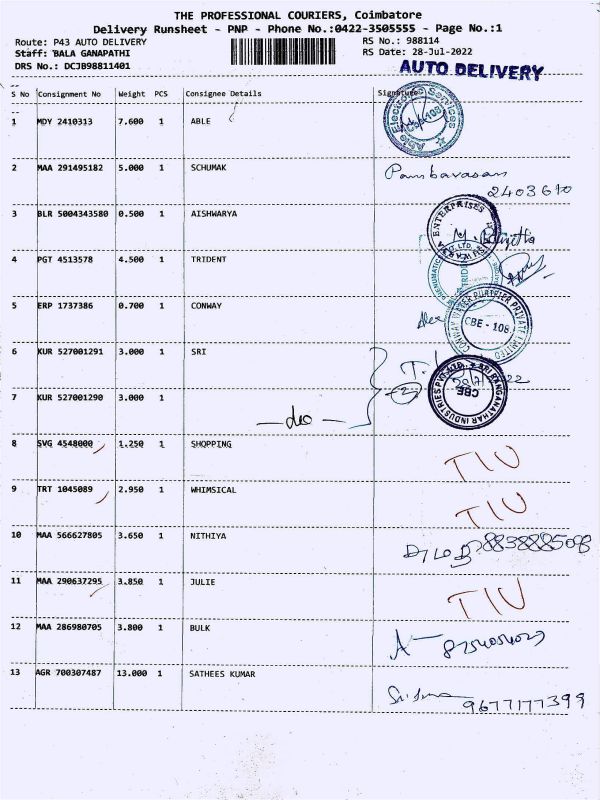 THE PROFESSIONAL COURIERS, Coimbatore
Delivery Runsheet - PNP - Phone No.:0422-3505555 - Page No.:1
Route: P43 AUTO DELIVERY RS No.: 988114
Staff: BALA GANAPATHI RS Date: 28-Jul-2022
DRS No.: DCJB98811401
AUTO DELIVERY
S No Consignment No Weight PCS Consignee Details Signature
1 MDY 2410313 7.600 1 ABLE
Able Electronic Services
CBE-108
2 MAA 291495182 5.000 1 SCHUMAK
Pambavasan
2403610
3 BLR 5004343580 0.500 1 AISHWARYA
ENTERPRISES
4 PGT 4513578 4.500 1 TRIDENT
TRIDENT PNEUMATICS
PVT. LTD.
5 ERP 1737386 0.700 1 CONWAY
Alex
CONWAY WATER PURIFIER PRIVATE LIMITED
CBE - 108
6 KUR 527001291 3.000 1 SRI
SRI RANGANATHAR INDUSTRIES PVT. LTD.
CBE
7 KUR 527001290 3.000 1
— do —
8 SVG 4548000 1.250 1 SHOPPING
TIU
9 TRT 1045089 2.950 1 WHIMSICAL
TIU
10 MAA 566627805 3.650 1 NITHIYA
8838885098
11 MAA 290637295 3.850 1 JULIE
TIU
12 MAA 286980705 3.800 1 BULK
13 AGR 700307487 13.000 1 SATHEES KUMAR
9677177399